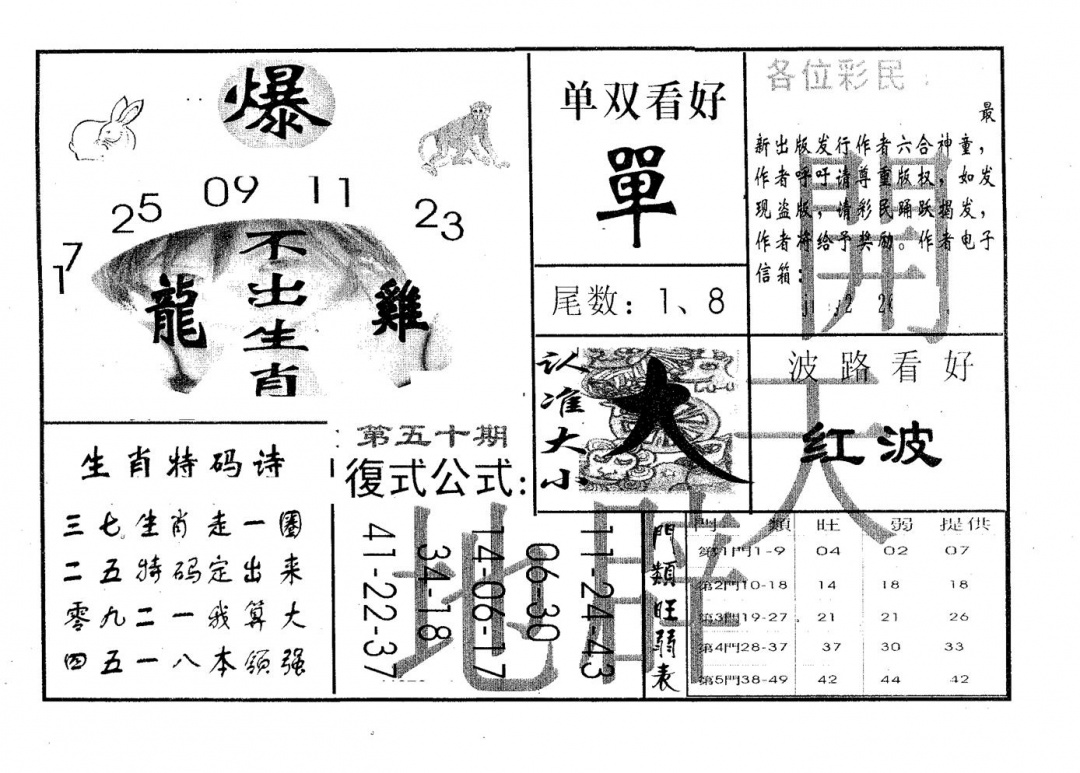 爆
25 09 11 23
17
不出生肖
龍
雞
单双看好
單
尾数：1、8
各位彩民
最
新出版发行作者六合神童，
作者呼吁请尊重版权，如发
现盗版，请彩民踊跃揭发，
作者将给予奖励。作者电子
信箱：
開
认准大小
大
波路看好
红波
天
生肖特码诗
三七生肖走一圈
二五特码定出来
零九二一我算大
四五一八本领强
第五十期
復式公式:
41-22-37
34-18
14-06-17
06-30
11-24-43
地
門類旺弱表
門 類 旺 弱 提供
第1門1-9 04 02 07
第2門10-18 14 18 18
第3門19-27 21 21 26
第4門28-37 37 30 33
第5門38-49 42 44 42